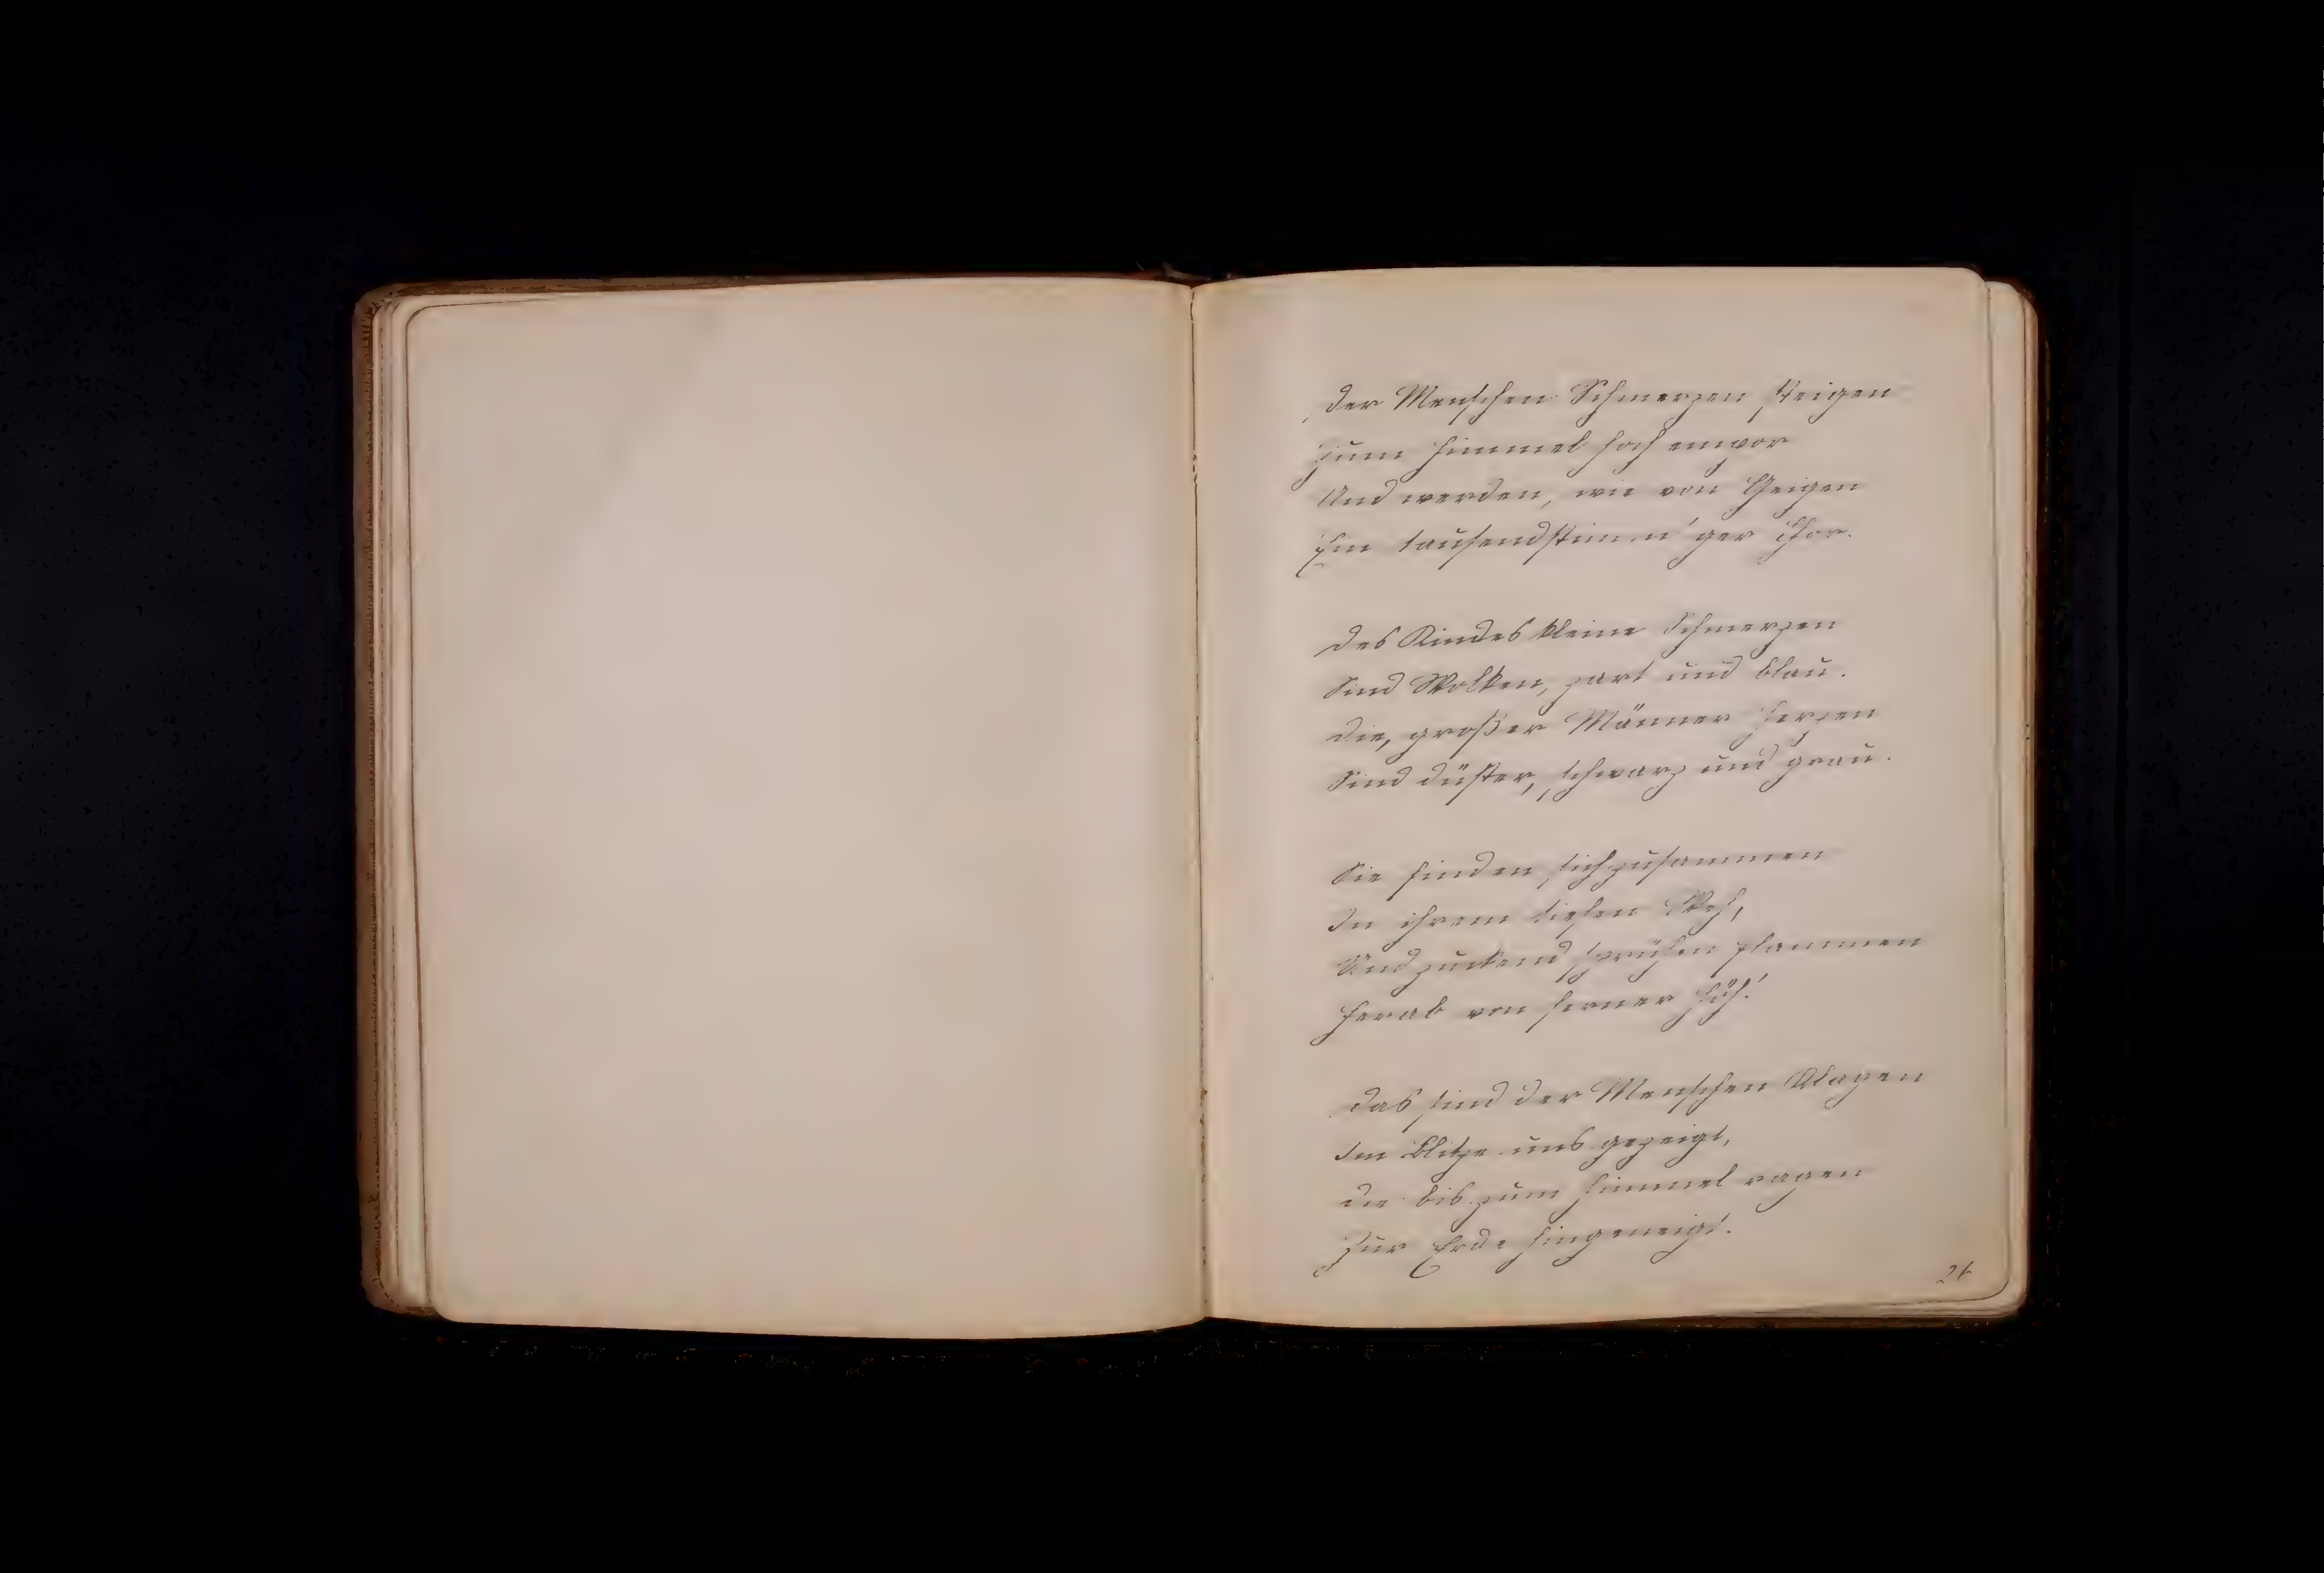 Der Menschen Schmerzen steigen
Zum Himmel hoch empor
Und werden, wie von Geigen
Ein tausendstimm'ger Chor.
Des Kindes kleine Schmerzen
Sind Wolken, zart und blau.
Die, großer Männer Herzen
Sind düster, schwarz und grau.
Sie finden sich zusammen
In ihrem tiefen Weh,
Und zuckend sprühen Flammen
Herab von ferner Höh!
Das sind der Menschen Klagen
Im Blitze uns gezeigt,
Die bis zum Himmel ragen
Zur Erde hingeneigt.